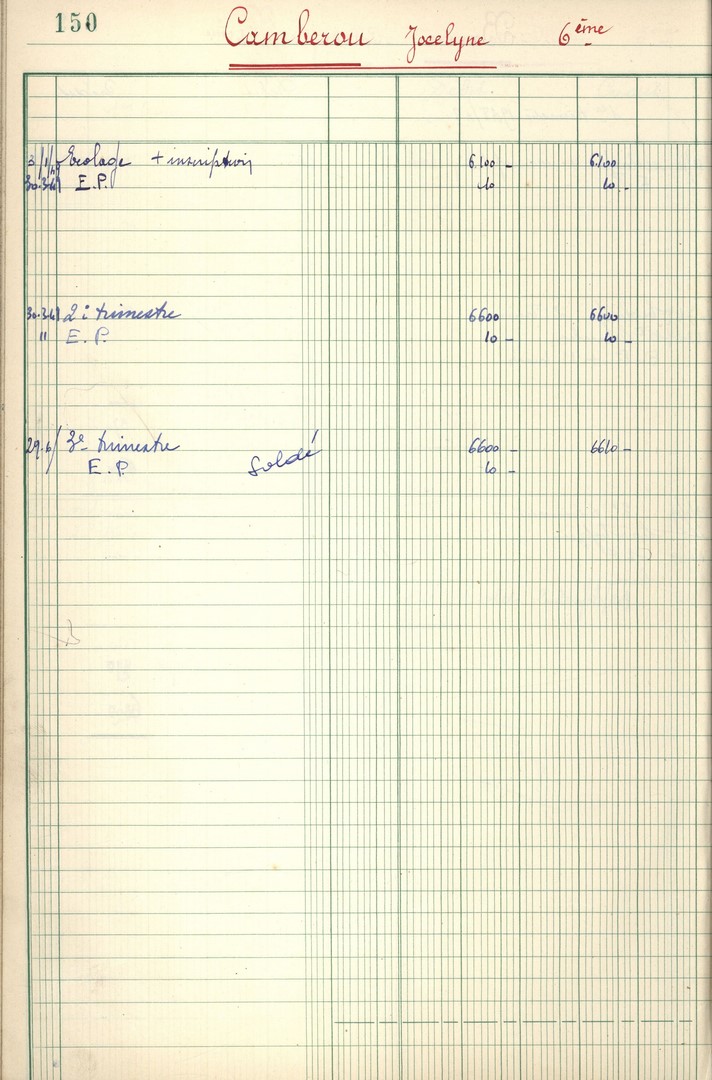 150 Camberou Jocelyne 6ème
Ecolage + inscription 6.100 - 6.100
E.P. 10 10.-
2è trimestre 6600 6600
" E.P. 10 - 10 -
29.6/ 3e trimestre 6600 - 6610 -
E.P. Soldé 10 -